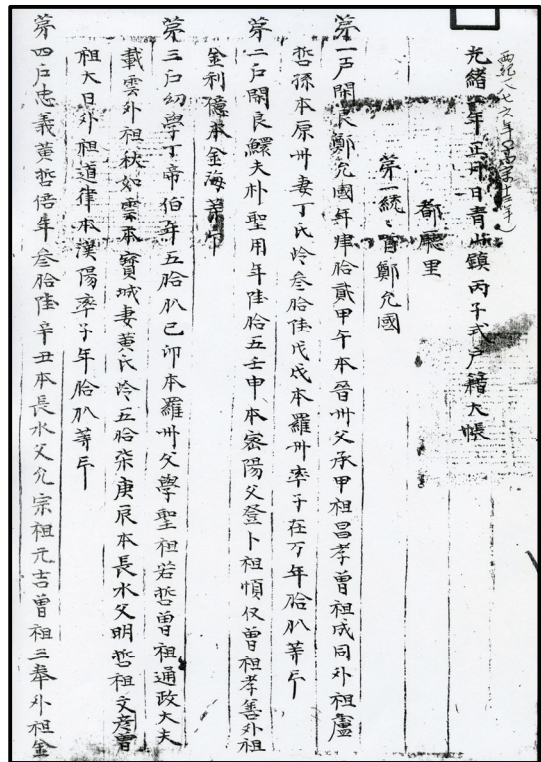 西紀一八七六年(高宗十三年)
光緒二年 正月 日青山鎮丙子式户籍大帳
都廳里
第一統、首鄭允國
第一户閑良鄭允國年肆拾貳甲午本晉州父承甲祖昌孝曾祖成同外祖盧
哲孫本原州妻丁氏岭叁拾陸戊戌本羅州率子在万年拾八等戶
第二户閑良鰥夫朴聖用年陸拾五壬申本密陽父登卜祖愼仅曾祖孝善外祖
金利億本金海等戶
第三户幼學丁帝伯年五拾八己卯本羅州父學聖祖若哲曾祖通政大夫
載雲外祖秋如雲本寳城妻黃氏岭五拾柒庚辰本長水父明哲祖文彦曾
祖大日外祖道律本漢陽率子年拾八等戶
第四户忠義黃哲倍年叁拾陸辛丑本長水父允宗祖元吉曾祖三奉外祖金